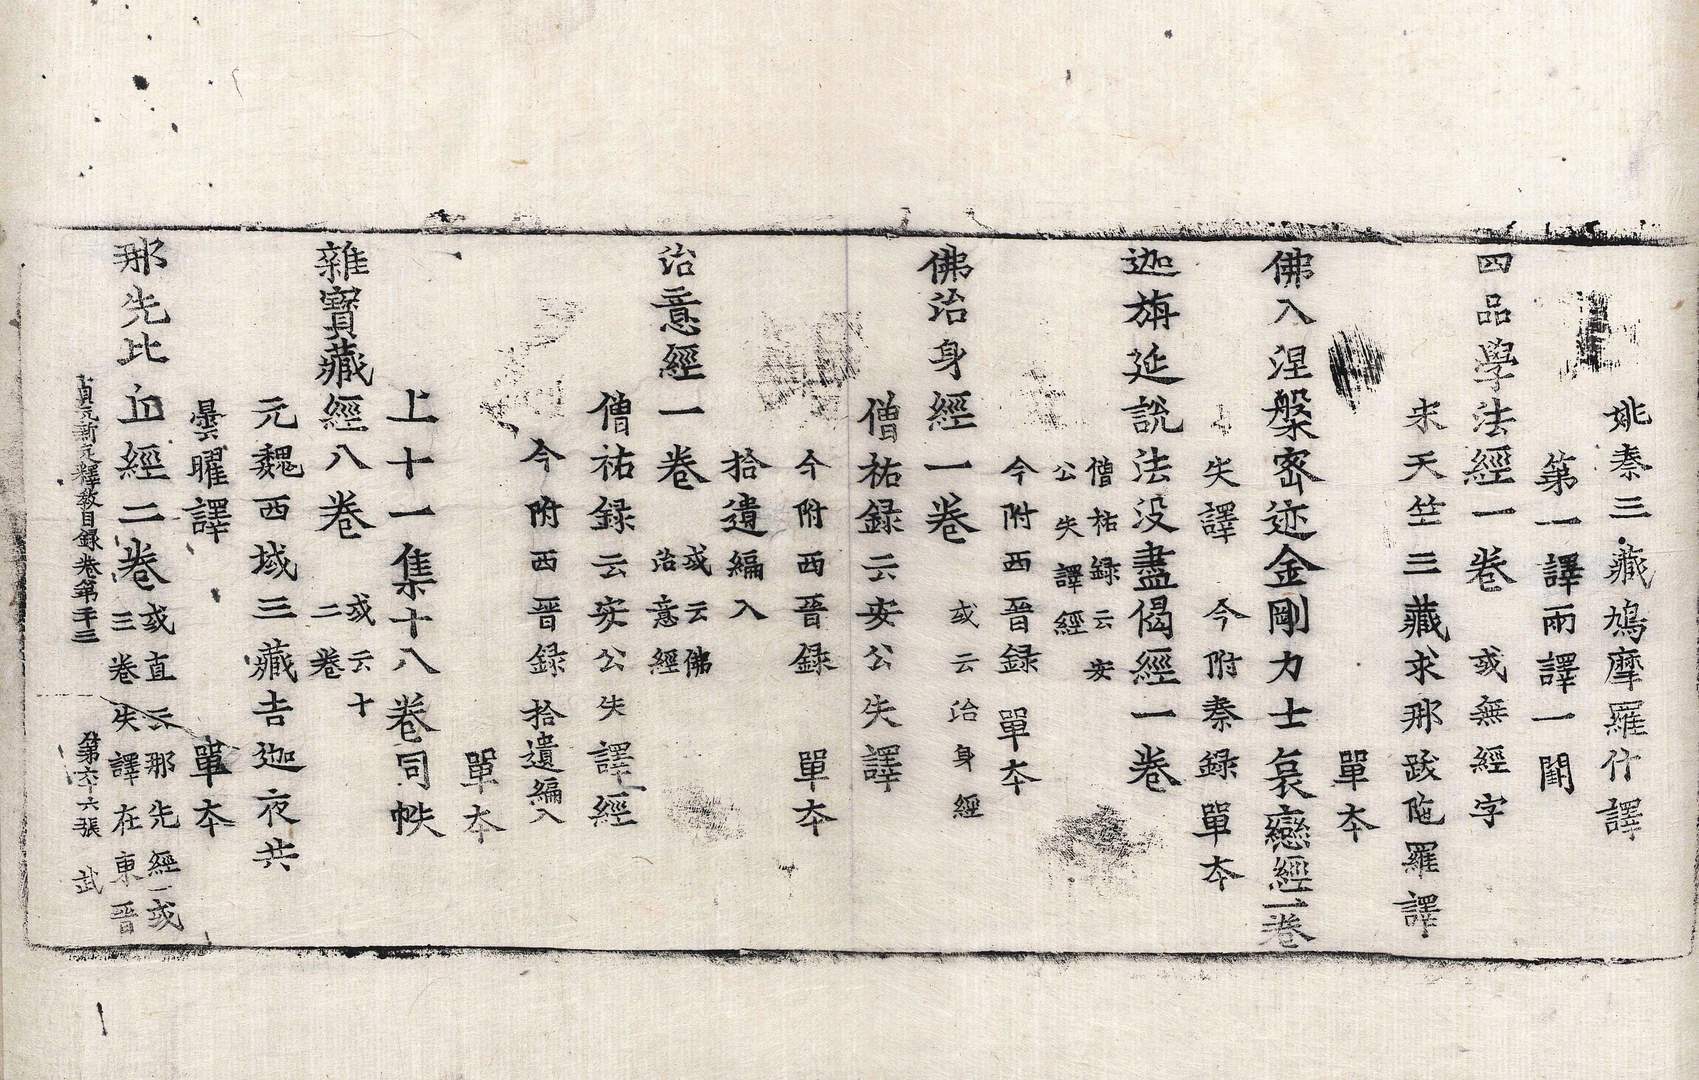 姚秦三藏鳩摩羅什譯
第一譯兩譯一闕
四品學法經一卷 或無經字
宋天竺三藏求那跋陁羅譯
單本
佛入涅槃密迹金剛力士哀戀經一卷
失譯今附秦録單本
迦旃延說法没盡偈經一卷
僧祐録云安
公失譯經
今附西晉録單本
佛治身經一卷 或云治身經
僧祐録云安公失譯
今附西晉録 單本
拾遺編入
治意經一卷 或云佛
治意經
僧祐録云安公失譯經
今附西晉録拾遺編入
單本
上十一集十八卷同帙
雜寶藏經八卷 或云十
二卷
元魏西域三藏吉迦夜共
曇曜譯 單本
那先比丘經二卷 或直云那先經或
三卷失譯在東晉
貞元新定釋教目録卷第二十三 第六十六張 武